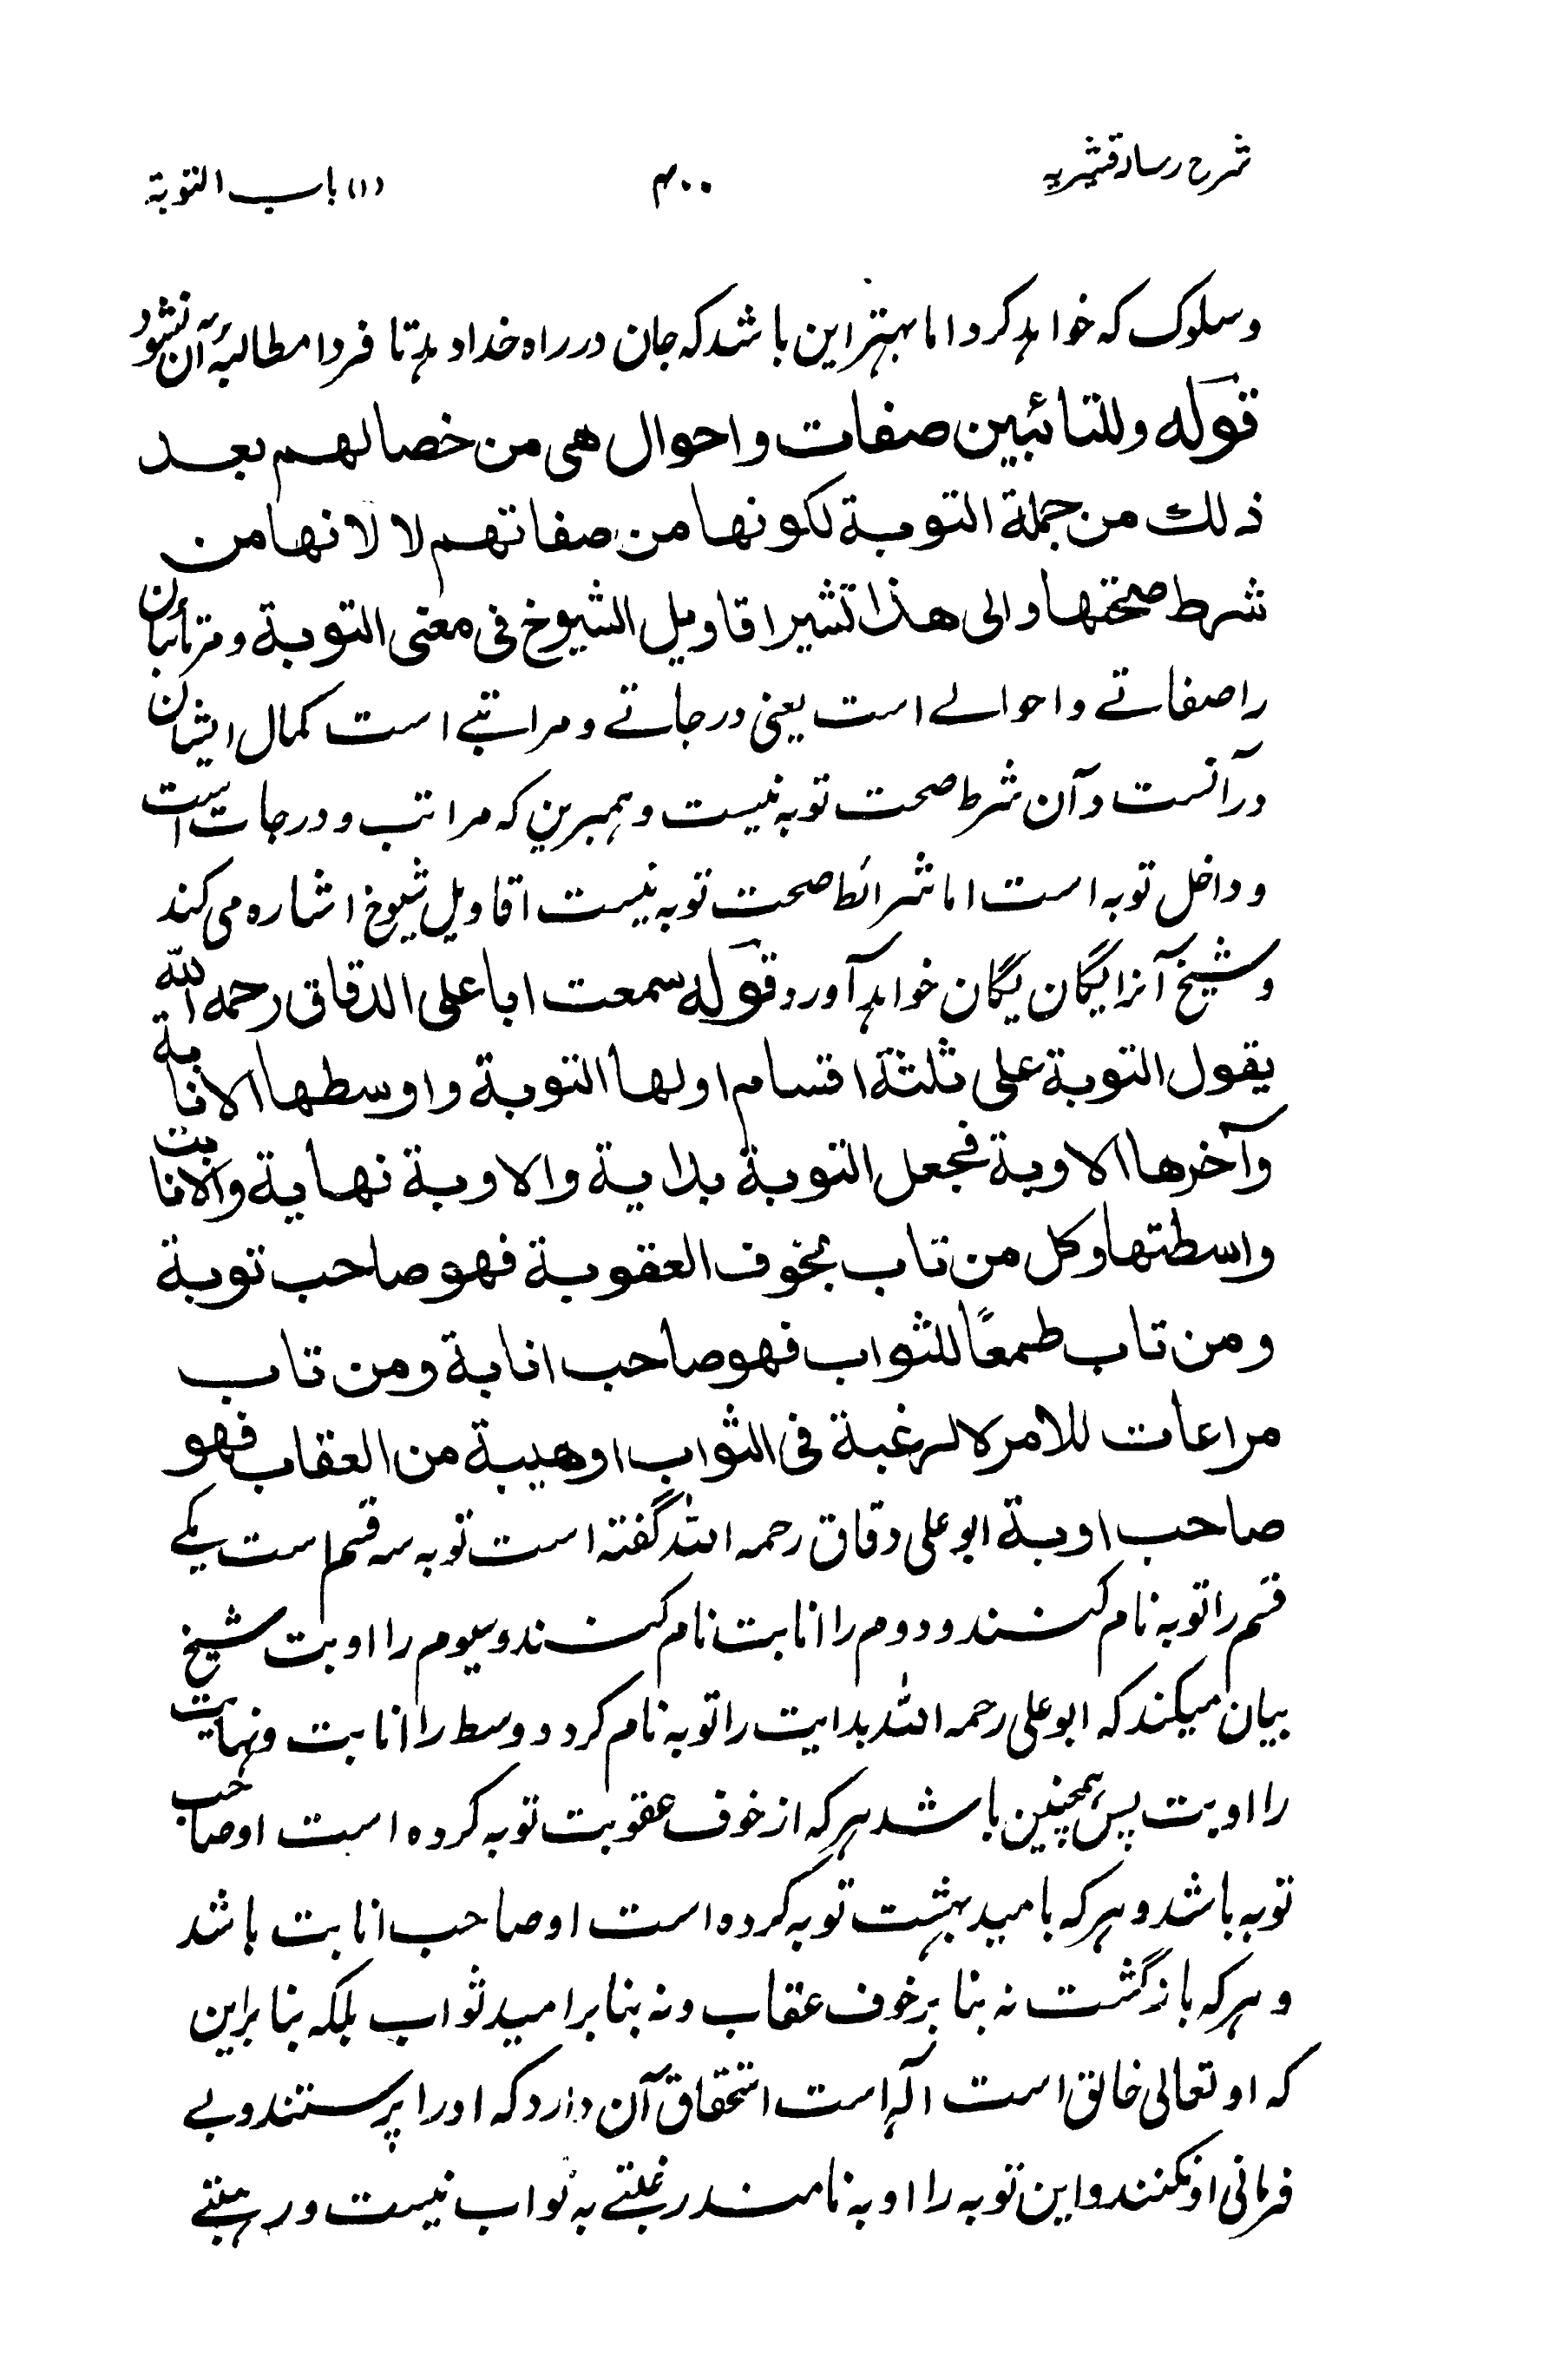 شرح رسالہ قشیریہ ۴۰۰ (۱) باب التوبة
وسلوک کہ خواہد کرد اما بہتر این باشد کہ جان در راہ خدا دہد تا فردا مطالبۂ آن نشود
قوله وللتائبین صفات واحوال هی من خصالهم بعد
ذلك من جملة التوبة لكونها من صفاتهم لا لانها من
شرط صحتها والی هذا تشیر اقاویل الشیوخ فی معنی التوبة ومر تائبان
را صفاتے و احوالے است یعنی درجاتے و مراتبے است کمال ایشان
در آنست و آن شرط صحت توبہ نیست و ہمبرین کہ مراتب و درجات است
و داخل توبہ است اما شرائط صحت توبہ نیست اقاویل شیوخ اشارہ می کند
و شیخ آنرا یگان یگان خواہد آورد قوله سمعت ابا علی الدقاق رحمه الله
یقول التوبة علی ثلثة اقسام اولها التوبة واوسطها الانابة
وآخرها الاوبة فجعل التوبة بدایة والاوبة نهایة والانابت
واسطتها وكل من تاب بخوف العقوبة فهو صاحب توبة
ومن تاب طمعًا للثواب فهو صاحب انابة ومن تاب
مراعات للامر لا لرغبة فی الثواب او هیبة من العقاب فهو
صاحب اوبة ابو علی دقاق رحمہ اللہ گفتہ است توبہ سہ قسم است یکے
قسم را توبہ نام کنند و دوم را انابت نام کنند و سیوم را اوبت شیخ
بیان میکند کہ ابو علی رحمہ اللہ بدایت را توبہ نام کرد و وسط را انابت و نہایت
را اوبت پس ہمچنین باشد ہر کہ از خوف عقوبت توبہ کردہ است او صاحب
توبہ باشد و ہر کہ بامید بہشت توبہ کردہ است او صاحب انابت باشد
و ہر کہ بازگشت نہ بنا بر خوف عقاب و نہ بنا بر امید ثواب بلکہ بنا برین
کہ او تعالی خالق است الہ است استحقاق آن دارد کہ او را پرستند و بے
فرمانی او نکنند و این توبہ را اوبہ نامند رغبتے بہ ثواب نیست و رہبتے